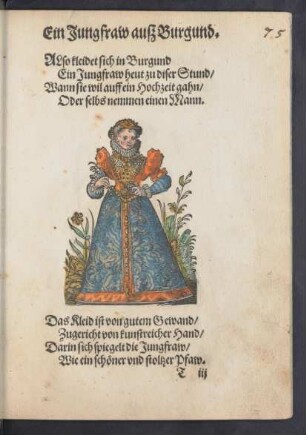 Ein Jungfraw auß Burgund.
75
ALso kleidet sich in Burgund
Ein Jungfraw heut zu diser Stund/
Wann sie wil auff ein Hochzeit gahn/
Oder selbs nemmen einen Mann.
Das Kleid ist von gutem Gewand/
Zugericht von kunstreicher Hand/
Darin sich spiegelt die Jungfraw/
Wie ein schöner vnd stoltzer Pfaw.
T iij